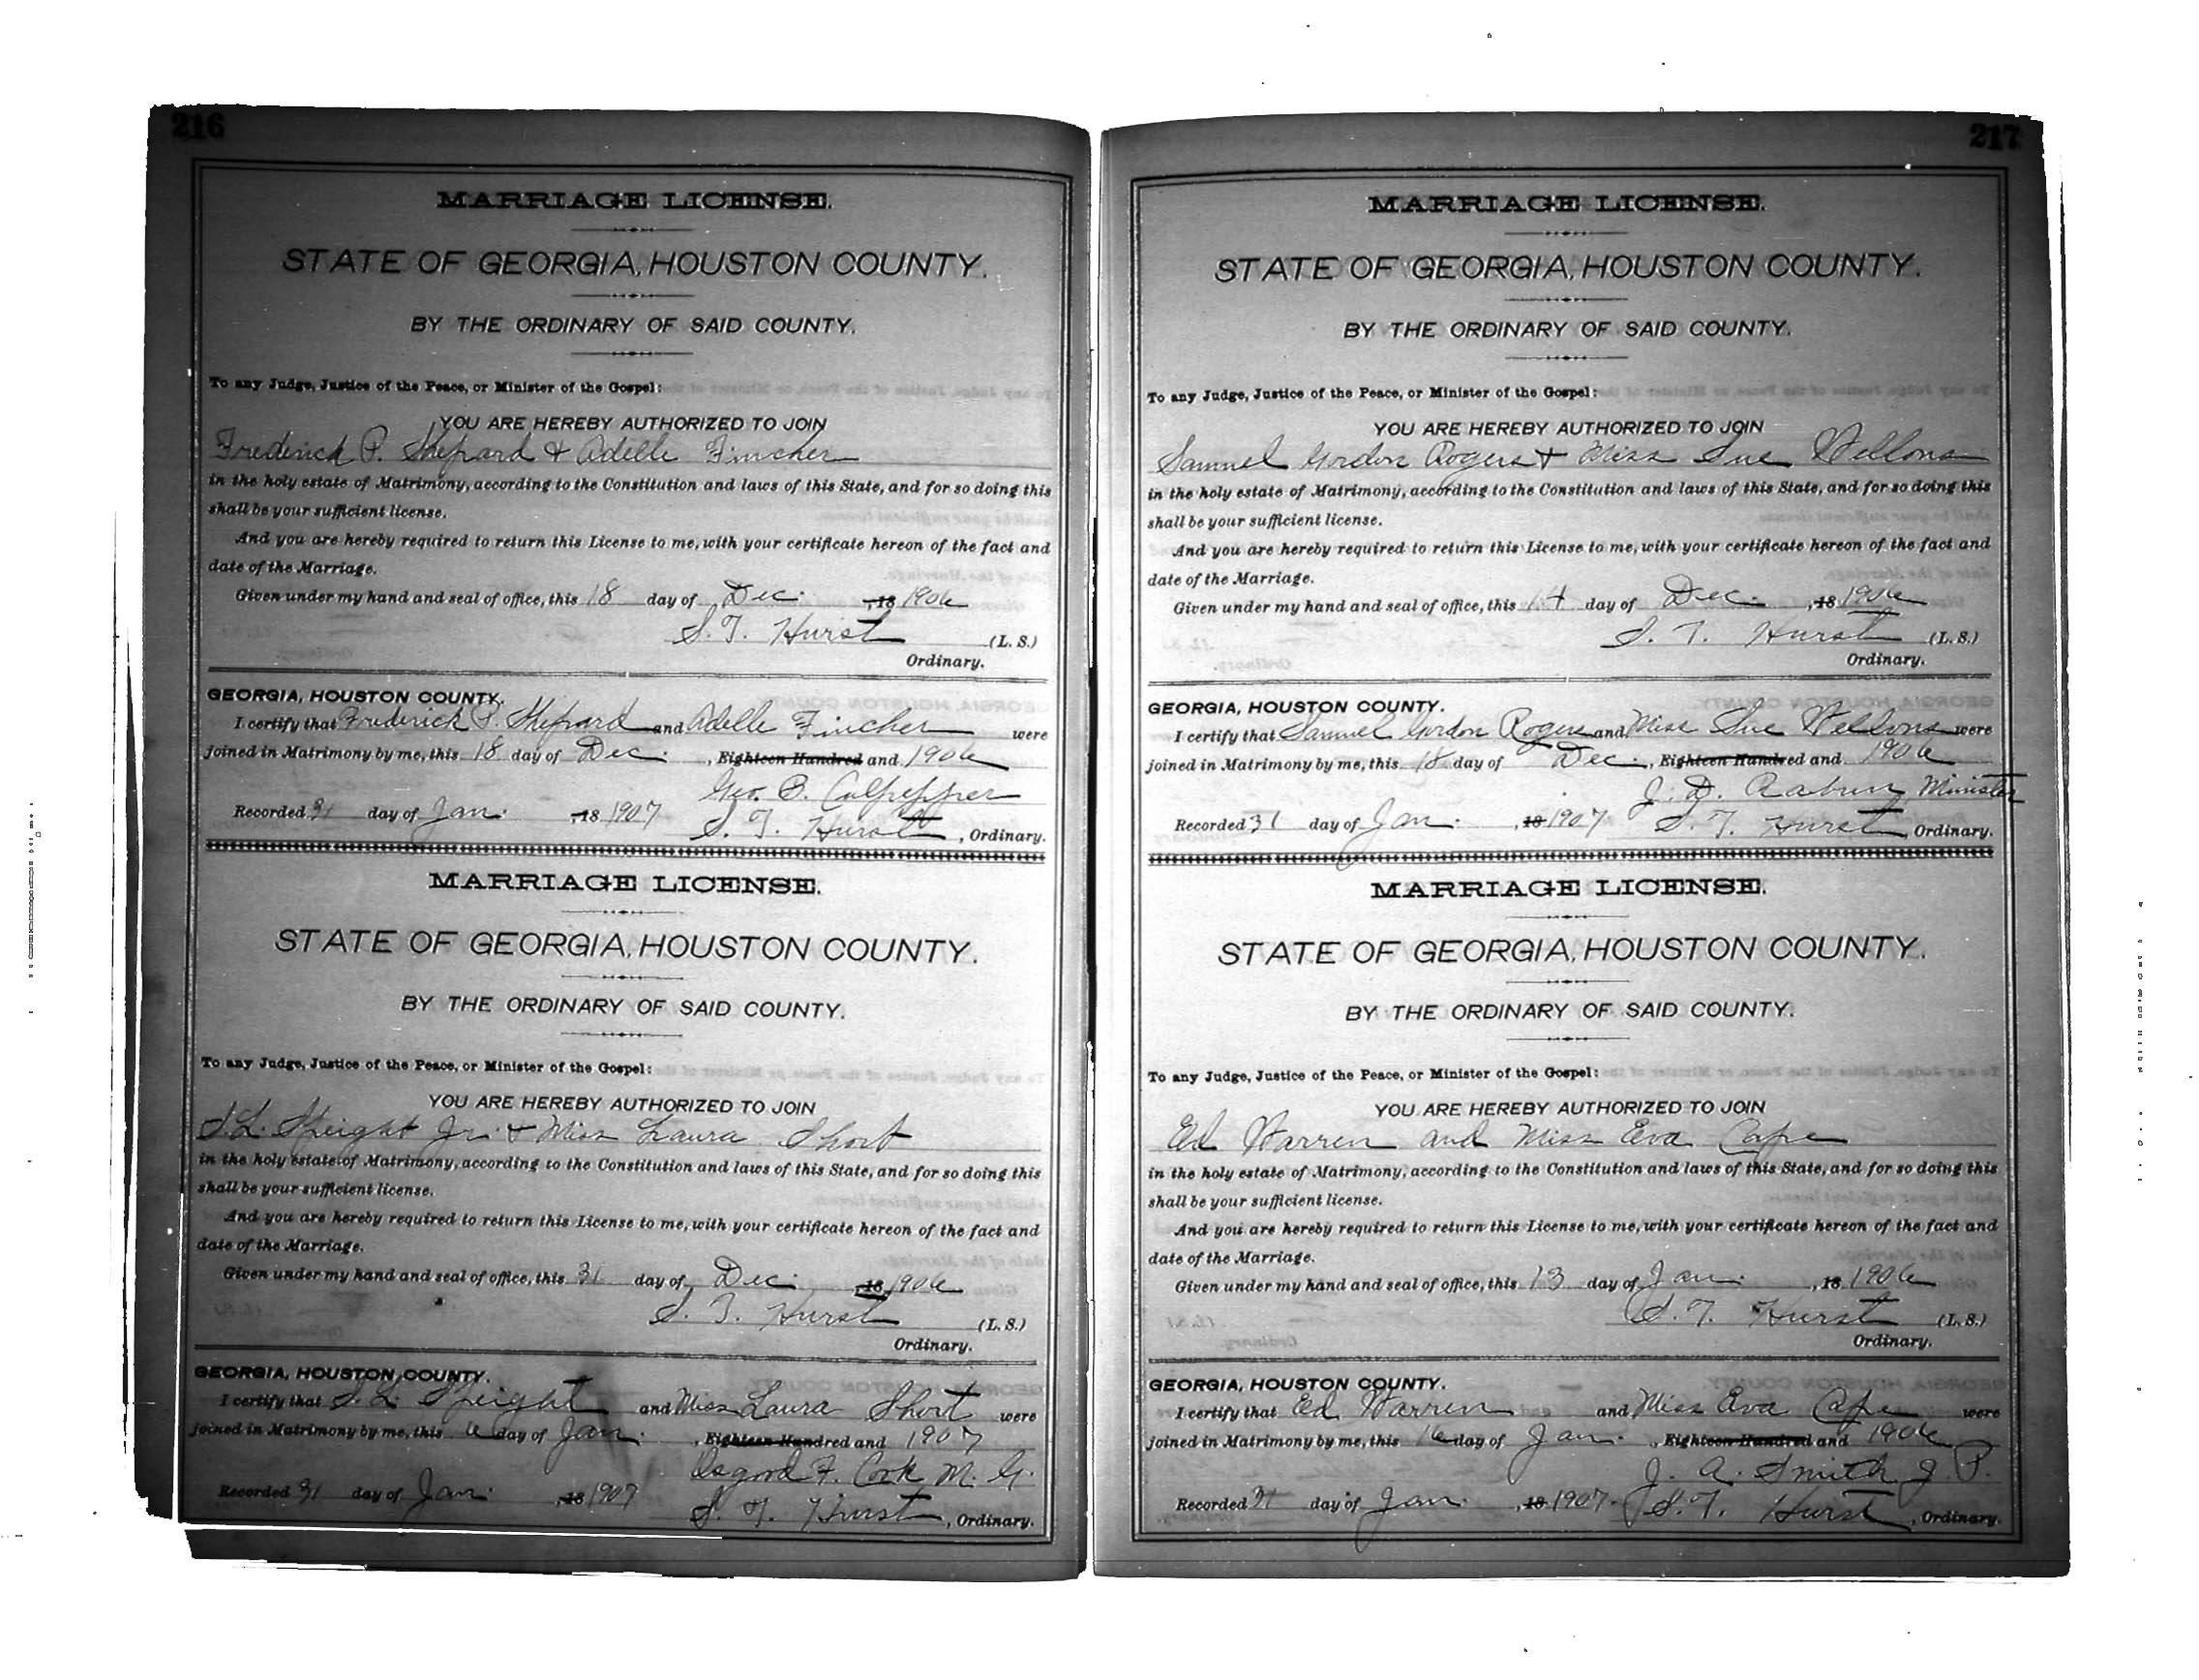 216
MARRIAGE LICENSE.
STATE OF GEORGIA, HOUSTON COUNTY.
BY THE ORDINARY OF SAID COUNTY.
To any Judge, Justice of the Peace, or Minister of the Gospel:
YOU ARE HEREBY AUTHORIZED TO JOIN
Frederick P. Shepard & Adelle Fincher
in the holy estate of Matrimony, according to the Constitution and laws of this State, and for so doing this
shall be your sufficient license.
And you are hereby required to return this License to me, with your certificate hereon of the fact and
date of the Marriage.
Given under my hand and seal of office, this 18 day of Dec. , 18 1906
S. T. Hurst (L. S.)
Ordinary.
GEORGIA, HOUSTON COUNTY.
I certify that Frederick P. Shepard and Adelle Fincher were
joined in Matrimony by me, this 18 day of Dec. , Eighteen Hundred and 1906
Geo. B. Culpepper
Recorded 31 day of Jan. , 18 1907 S. T. Hurst, Ordinary.
MARRIAGE LICENSE.
STATE OF GEORGIA, HOUSTON COUNTY.
BY THE ORDINARY OF SAID COUNTY.
To any Judge, Justice of the Peace, or Minister of the Gospel:
YOU ARE HEREBY AUTHORIZED TO JOIN
S. L. Speight Jr. & Miss Laura Short
in the holy estate of Matrimony, according to the Constitution and laws of this State, and for so doing this
shall be your sufficient license.
And you are hereby required to return this License to me, with your certificate hereon of the fact and
date of the Marriage.
Given under my hand and seal of office, this 31 day of Dec. , 18 1906
S. T. Hurst (L. S.)
Ordinary.
GEORGIA, HOUSTON COUNTY.
I certify that S. L. Speight and Miss Laura Short were
joined in Matrimony by me, this 6 day of Jan. , Eighteen Hundred and 1907
Osgood F. Cook M. G.
Recorded 31 day of Jan. , 18 1907 S. T. Hurst, Ordinary.
217
MARRIAGE LICENSE.
STATE OF GEORGIA, HOUSTON COUNTY.
BY THE ORDINARY OF SAID COUNTY.
To any Judge, Justice of the Peace, or Minister of the Gospel:
YOU ARE HEREBY AUTHORIZED TO JOIN
Samuel Gordon Rogers & Miss Sue Wellons
in the holy estate of Matrimony, according to the Constitution and laws of this State, and for so doing this
shall be your sufficient license.
And you are hereby required to return this License to me, with your certificate hereon of the fact and
date of the Marriage.
Given under my hand and seal of office, this 14 day of Dec. , 18 1906
S. T. Hurst (L. S.)
Ordinary.
GEORGIA, HOUSTON COUNTY.
I certify that Samuel Gordon Rogers and Miss Sue Wellons were
joined in Matrimony by me, this 18 day of Dec. , Eighteen Hundred and 1906
J. D. Rabun Minister
Recorded 31 day of Jan. , 18 1907 S. T. Hurst, Ordinary.
MARRIAGE LICENSE.
STATE OF GEORGIA, HOUSTON COUNTY.
BY THE ORDINARY OF SAID COUNTY.
To any Judge, Justice of the Peace, or Minister of the Gospel:
YOU ARE HEREBY AUTHORIZED TO JOIN
Ed Warren and Miss Eva Cape
in the holy estate of Matrimony, according to the Constitution and laws of this State, and for so doing this
shall be your sufficient license.
And you are hereby required to return this License to me, with your certificate hereon of the fact and
date of the Marriage.
Given under my hand and seal of office, this 13 day of Jan. , 18 1906
S. T. Hurst (L. S.)
Ordinary.
GEORGIA, HOUSTON COUNTY.
I certify that Ed Warren and Miss Eva Cape were
joined in Matrimony by me, this 16 day of Jan. , Eighteen Hundred and 1906
J. A. Smith J. P.
Recorded 31 day of Jan. , 18 1907. S. T. Hurst, Ordinary.